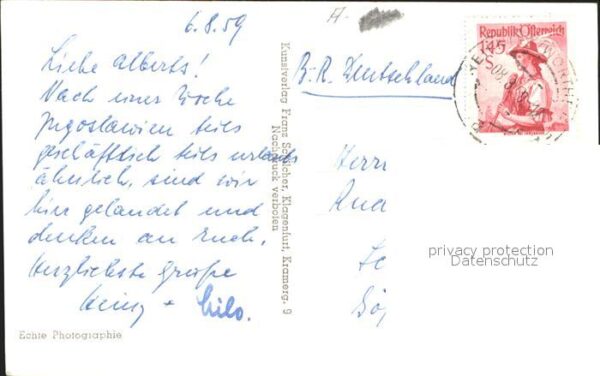 6.8.59
Liebe Alberts!
Nach einer Woche
Jugoslawien teils
geschäftlich teils urlaubs
ähnlich, sind wir
hier gelandet und
denken an Euch.
Herzlichste Grüße
Heinz + Lilo.
Echte Photographie
Kunstverlag Franz Schilcher, Klagenfurt, Kramerg. 9
Nachdruck verboten
A-
B.R. Deutschland
Republik Österreich
145
Herrn
privacy protection
Datenschutz